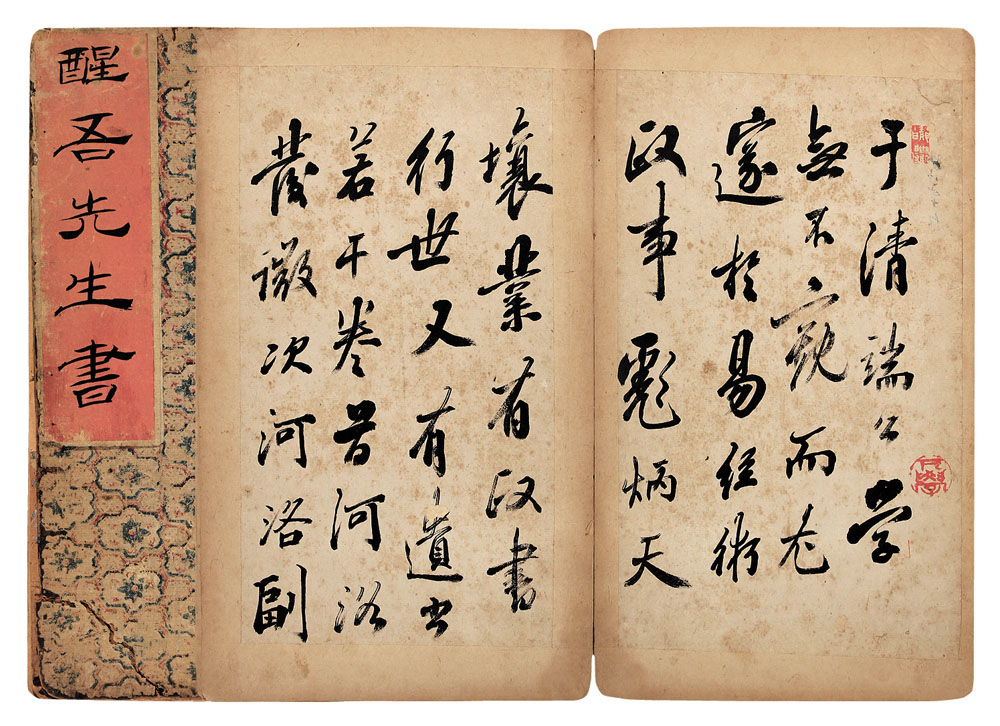 醒吾先生書
于清端公学
無不窺而尤
邃於易経術
政事彪炳天
壤業有政書
行世又有遺书
若干卷首河洛
發微次河洛副